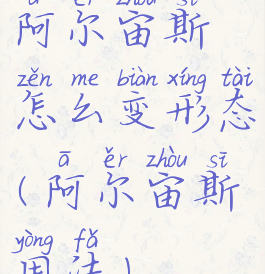 ā ěr zhòu sī
阿尔宙斯
zěn me biàn xíng tài
怎么变形态
ā ěr zhòu sī
(阿尔宙斯
yòng fǎ
用法)